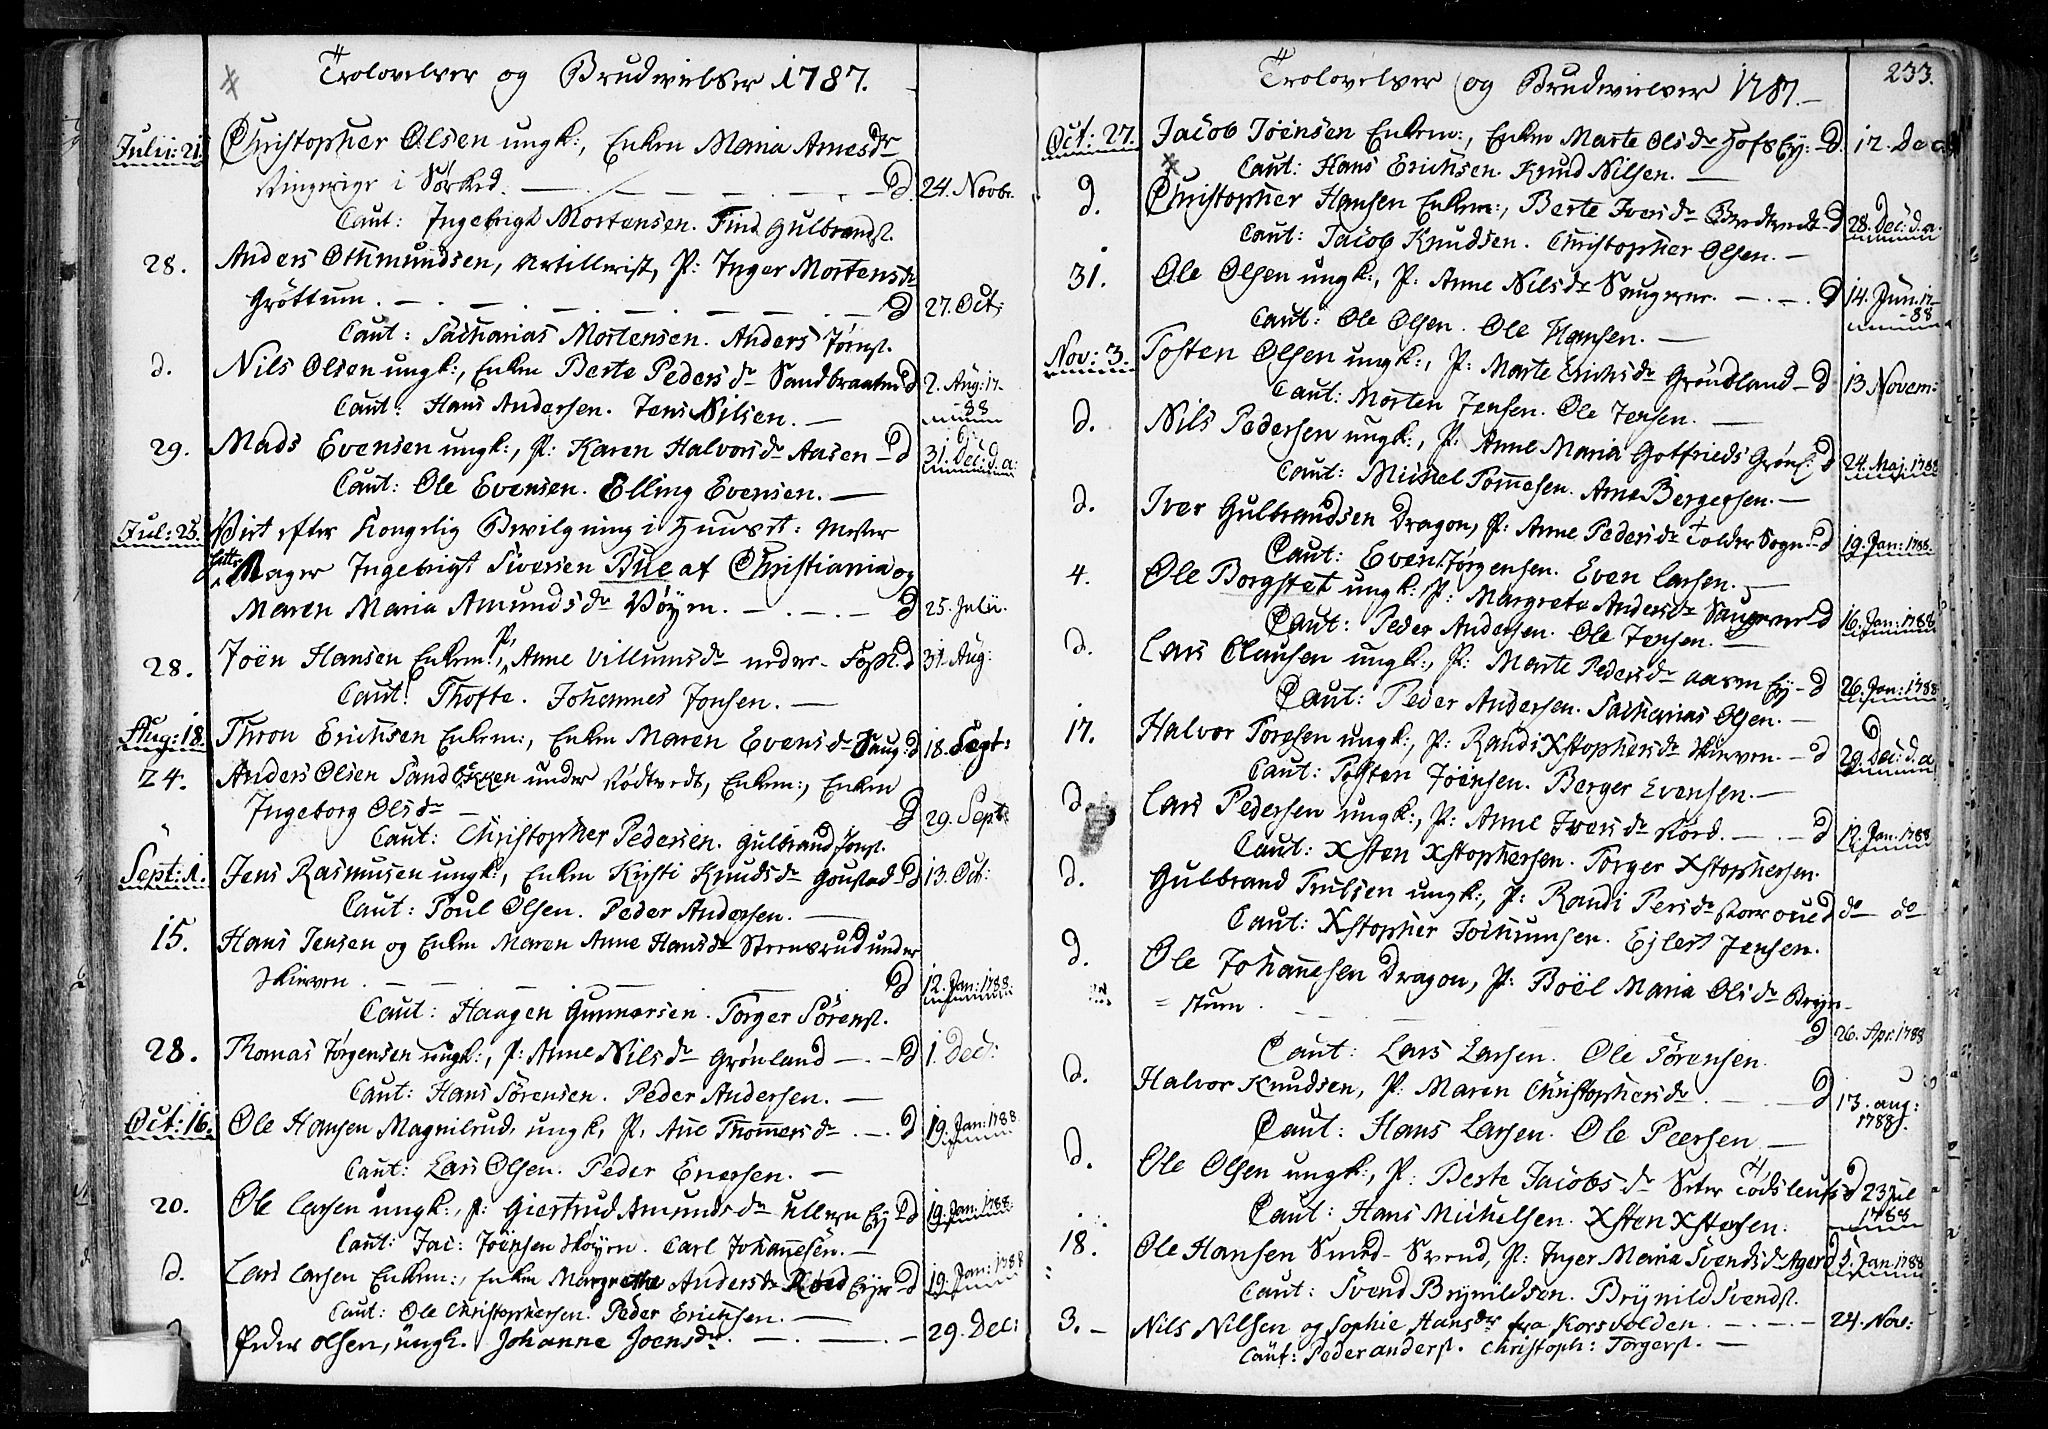 Trolovelser og Brudevielser 1787.
Julii: 21. Christopher Olsen ungk:, Enken Maria Arnesdr
Ringerige i Sørked. — D. 24. Novbr.
Caut: Ingebrigt Mortensen. Find Gulbrands.
28. Anders Othmundsen, Artillerist, P: Inger Mortensdr
Grøttum. — D 27. Oct:
Caut: Sacharias Mortensen. Anders Jørns.
d. Nils Olsen ungk:, Enken Berte Pedersdr Sandbraaten D 2. Aug: 17-
88
Caut: Hans Andersen. Jens Nilsen. —
29. Mads Evensen ungk:, P: Karen Halvorsdr Aasen — D 31. Dec: d. a:
Caut: Ole Evensen. Elling Evensen. —
Jul: 25. Viet efter Kongelig Bevilgning i Huuset: Mester
Hatte-Mager Ingebrigt Siversen Bue af Christiania og
Maren Maria Amundsdr Høyen. — D 25. Julii.
28. Joen Hansen Enkem: P: Anne Villumsdr neder- Foss. D 31. Aug:
Caut: Thofte. Johannes Jonsen. —
Aug: 18. Thron Erichsen Enkem:, Enken Maren Evensdr Saug: D 18. Sept:
24. Anders Olsen Sandbakken under Rødtvedt, Enkem:, Enken
Ingeborg Olsdr — D 29. Sept:
Caut: Christopher Pedersen. Gulbrand Jons.
Sept: 1. Jens Rasmusen ungk:, Enken Kirsti Knudsdr Goustad D 13. Oct:
Caut: Poul Olsen. Peder Andersen. —
15. Hans Jensen og Enken Maren Anne Hansdr Steensrud under
Skierven. — D 12. Jan: 1788.
Caut: Haagen Gunnersen. Torger Sørens.
28. Thomas Jørgensen ungk:, P: Anne Nilsdr Grønland — D 1. Dec:
Caut: Hans Sørensen. Peder Andersen. —
Oct: 16. Ole Hansen Magnilrud, ungk, P: Ane Thommesdr — D 19. Jan: 1788
Caut: Lars Olsen. Peder Enersen. —
20. Ole Larsen ungk:, P: Giertrud Amundsdr Ullern Ey D 19. Jan: 1788.
Caut: Jac: Joensen Høyen. Carl Johannesen. —
d. Lars Larsen Enkem:, Enken Margrethe Andersdr Røed Eyer D 19. Jan: 1788
Caut: Ole Christophersen. Peder Erichsen. —
Peder Olsen, ungk. Johanne Joensdr. — 29. Dec:
233.
Trolovelser og Brudevielser 1787. —
Oct: 27. Jacob Joensen Enkem:, Enken Marte Olsdr Hofs Ey: D. 12. Dec:
Caut: Hans Erichsen. Knud Nilsen. —
d. Christopher Hansen Enkem:, Berte Iversdr Bredtvedt D 28. Dec: d. a.
Caut: Jacob Knudsen. Christopher Olsen. —
31. Ole Olsen ungk:, P: Anne Nilsdr Saugerne. — D 14. Jun. 17-
88
Caut: Ole Olsen. Ole Hansen. —
Nov: 3. Tosten Olsen ungk:, P: Marte Erichsdr Grøndland — D 13 Novem:
Caut: Morten Jensen. Ole Jensen. —
d. Nils Pedersen ungk:, P: Anne Maria Gotfrieds Grøn: D 24. Maj. 1788
Caut: Michel Tommesen. Arne Bergersen. —
d. Iver Gulbrandsen Dragon, P: Anne Pedersdr Tolder Sogn — D 19. Jan: 1788.
Caut: Even Jørgensen. Even Larsen. —
4. Ole Borgstet ungk: P: Margrete Andersdr Saugerne D 16. Jan: 1788
Caut: Peder Andersen. Ole Jensen. —
d. Lars Clausen ungk:, P: Marte Pedersdr Aasen Ey — D 26. Jan: 1788
Caut: Peder Andersen. Sacharias Olsen. —
17. Halvor Torgesen ungk:, P: Randi Xstophersdr Skierven. — D 29. Dec: d. a.
Caut: Tosten Joensen. Berger Evensen. —
d. Lars Pedersen ungk:, P: Anne Iversdr Røed. — D 12. Jan: 1788
Caut: Xsten Xstophersen. Torger Xstophersen.
d. Gulbrand Trulsen ungk:, P: Randi Persdr D do do
Caut: Xstopher Jochumsen. Ejlert Jensen.
d. Ole Johannesen Dragon, P: Boël Maria Olsdr Bryn-
= sturn. — D 26. Apr: 1788
Caut: Lars Larsen. Ole Sørensen.
d. Halvor Knudsen, P: Maren Christophersdr. — D 13. aug:
1788.
Caut: Hans Larsen. Ole Peersen —
d. Ole Olsen ungk:, P: Berte Jacobsdr Seter D 23 Jul
1788
Caut: Hans Michelsen. Xsten Xstofsen:
18. Ole Hansen Smed-Svend, P: Inger Maria Svendsdr Ager D 5. Jan. 1788
Caut: Svend Brynildsen. Brynild Svends.
3. — Nils Nilsen og Sophie Hansdr fra Korsvolden. — 24. Nov:
Caut: Peder anders. Christoph: Torgers. —